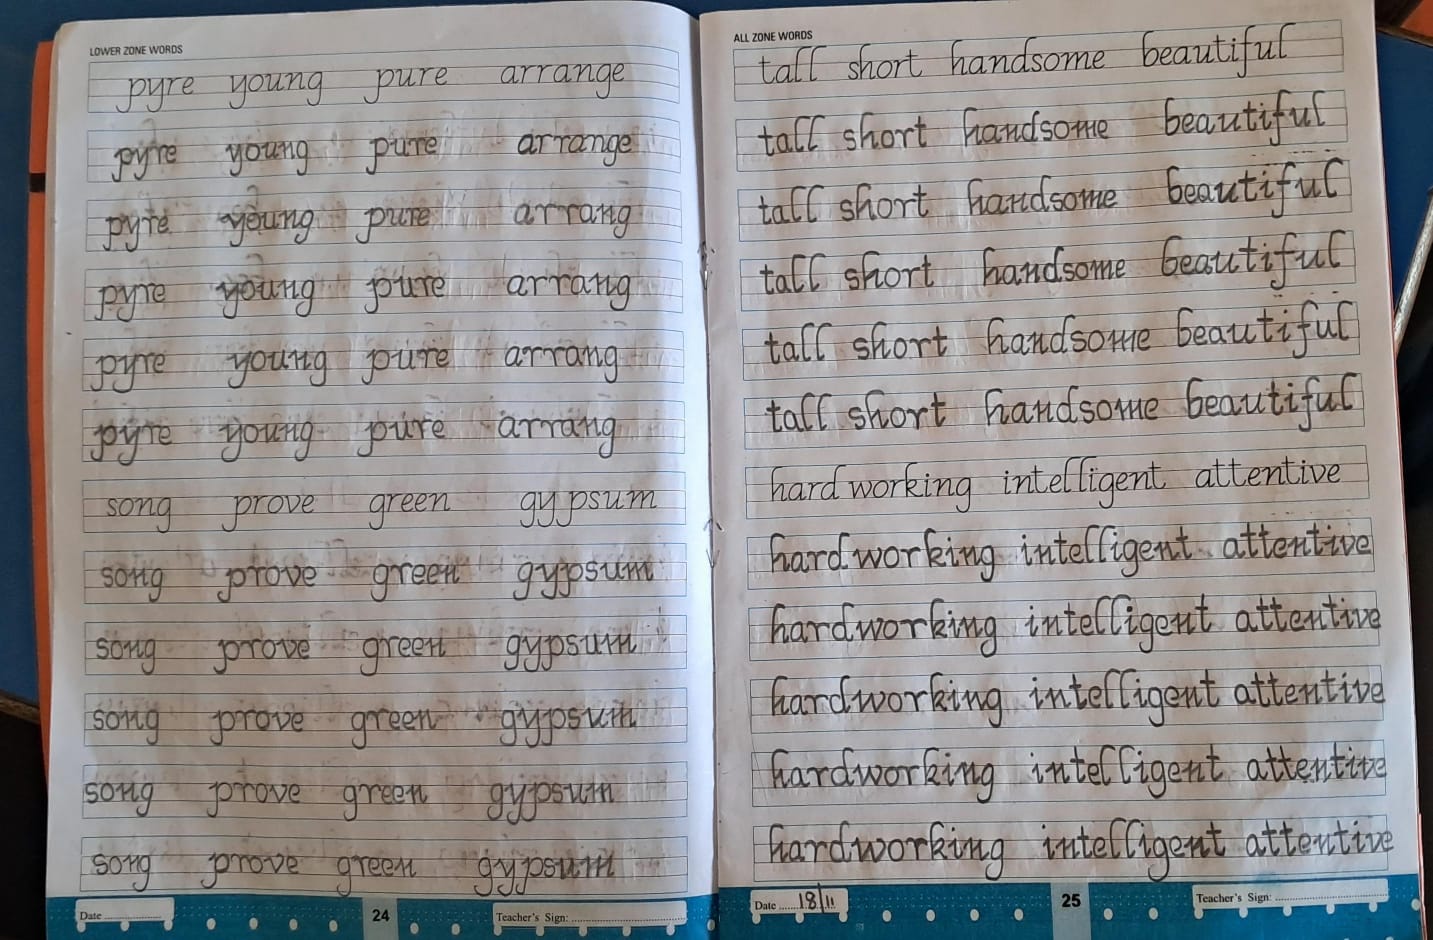 LOWER ZONE WORDS
pyre young pure arrange
pyre young pure arrange
pyre young pure arrang
pyre young pure arrang
pyre young pure arrang
pyre young pure arrang
song prove green gypsum
song prove green gypsum
song prove green gypsum
song prove green gypsum
song prove green gypsum
song prove green gypsum
Date
24
Teacher's Sign:
ALL ZONE WORDS
tall short handsome beautiful
tall short handsome beautiful
tall short handsome beautiful
tall short handsome beautiful
tall short handsome beautiful
tall short handsome beautiful
hardworking intelligent attentive
hardworking intelligent attentive
hardworking intelligent attentive
hardworking intelligent attentive
hardworking intelligent attentive
hardworking intelligent attentive
Date 18/11
25
Teacher's Sign: